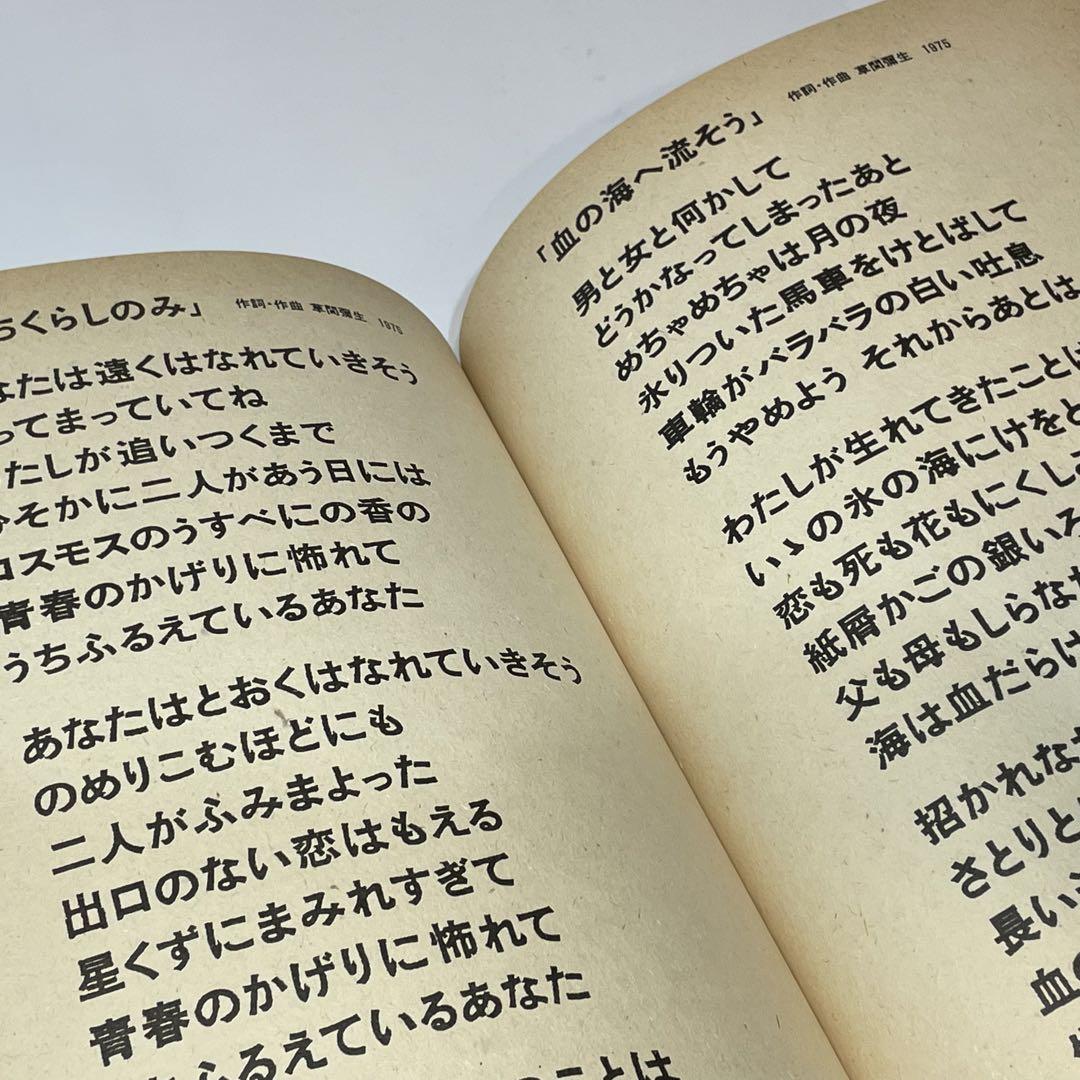 ちくらしのみ」
作詞・作曲 草間彌生 1975
なたは遠くはなれていきそう
ってまっていてね
たしが追いつくまで
そかに二人があう日には
コスモスのうすべにの香の
青春のかげりに怖れて
うちふるえているあなた
あなたはとおくはなれていきそう
のめりこむほどにも
二人がふみまよった
出口のない恋はもえる
星くずにまみれすぎて
青春のかげりに怖れて
ふるえているあなた
ことは
「血の海へ流そう」
作詞・作曲 草間彌生 1975
男と女と何かして
どうかなってしまったあと
めちゃめちゃは月の夜
氷りついた馬車をけとばして
車輪がバラバラの白い吐息
もうやめよう それからあとは
わたしが生れてきたことは
いゝの氷の海にけをと
恋も死も花もにくしみ
紙屑かごの銀いろ
父も母もしらな
海は血だらけ
招かれな
さとりと
長い
血の